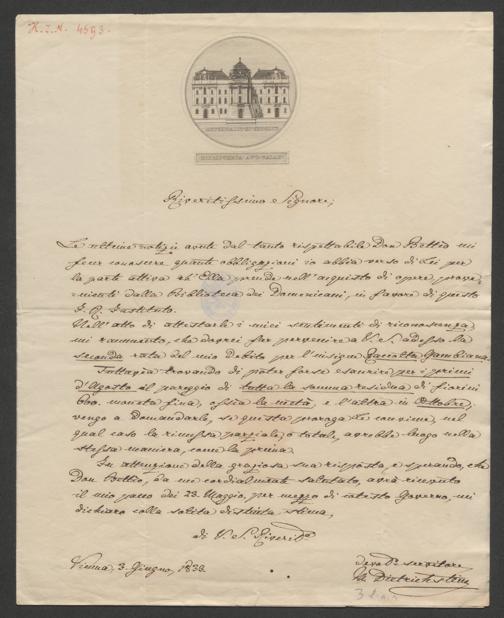 K. I. N. 4593.
BIBLIOTHECA AUG. PALAT.
Riveritissimo Signore;
Le ultime notizie avute dal tanto rispettabile Don Bettio mi
fecer conoscere quante obbligazioni io abbia verso di Lei per
la parte attiva ch'Ella prende nell'acquisto di opere, prove-
nienti dalla Biblioteca dei Domenicani, in favore di questo
I. R. Instituto.
Nell'atto di attestarle i miei sentimenti di riconoscenza,
mi rammento, che dovrei far pervenire a V. S. adesso la
seconda rata del mio debito per l'insigne Raccolta Gambiana.
Tuttavia trovando di poter forse esaurire per i primi
d'Agosto il pareggio di tutta la somma residua di fiorini
600. moneta fina, ossia la metà, e l'altra in Ottobre,
vengo a domandarle, se questa proroga Le conviene, nel
qual caso la rimessa parziale, o totale, avrebbe luogo nella
stessa maniera, come la prima.
In attenzione della graziosa sua risposta, e sperando, che
Don Bettio, da me cordialmente salutato, avrà ricevuto
il mio piego dei 23. Maggio, per mezzo di cotesto Governo, mi
dichiaro colla solita distinta stima,
di V. S. Riverit.ma
Vienna 3. Giugno, 1833.
devo.mo servitore
Dietrichstein